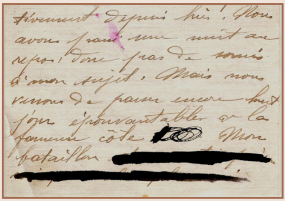 tivement depuis hier. Nous
avons passé une nuit au
repos, donc pas de soucis
à mon sujet. Mais nous
venons de passer encore huit
jours épouvantables sur la
fameuse côte Mon
bataillon